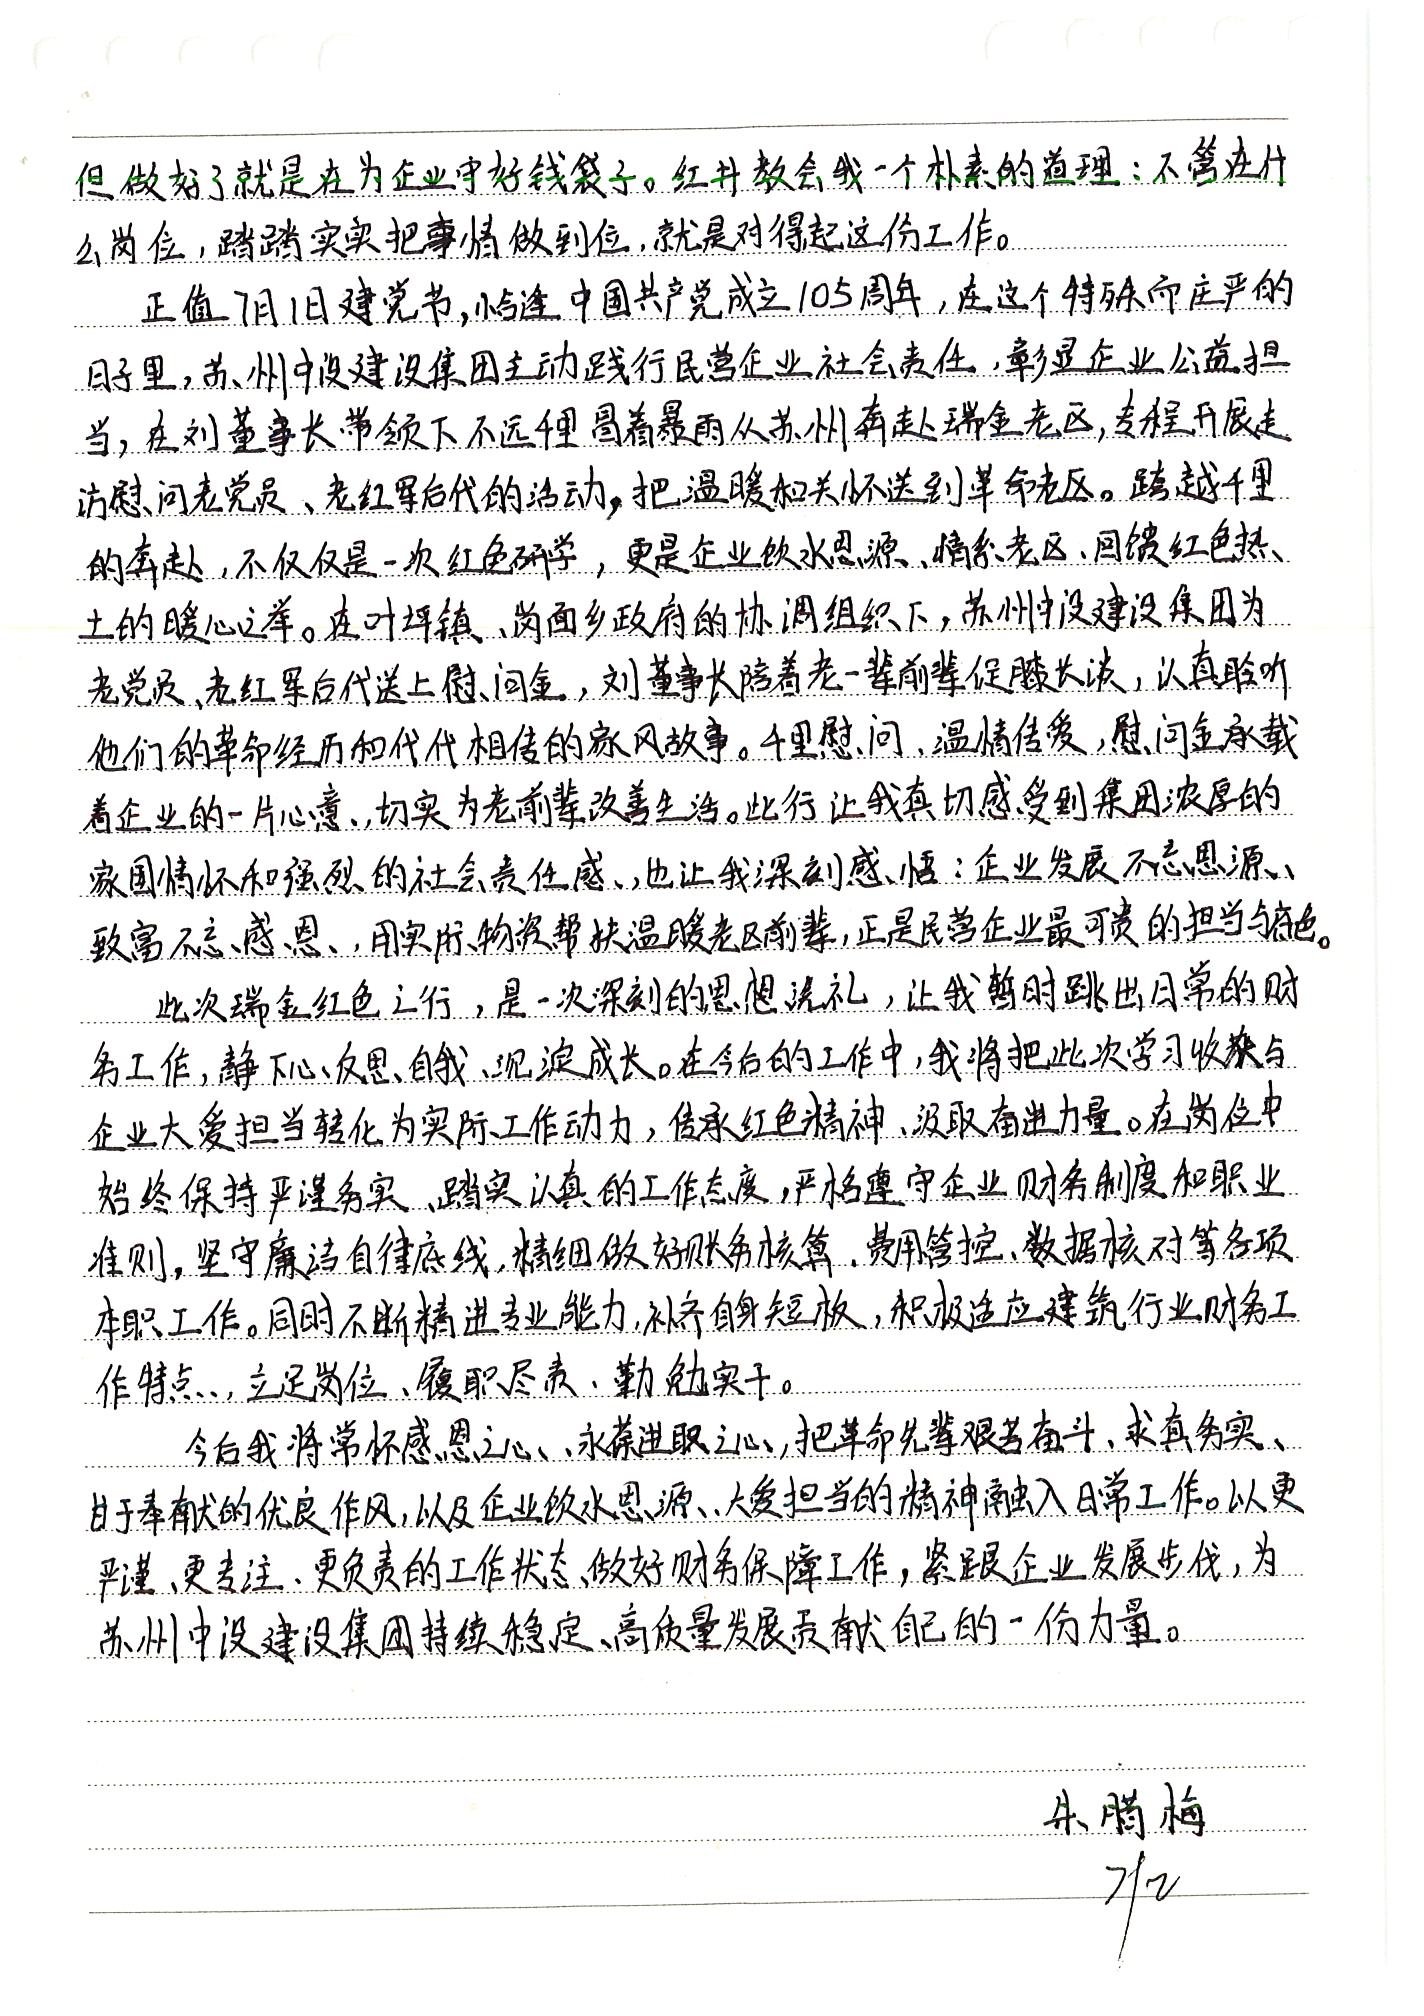 但做好了就是在为企业守好钱袋子。红井教会我一个朴素的道理：不管在什
么岗位，踏踏实实把事情做到位，就是对得起这份工作。
正值7月1日建党节，恰逢中国共产党成立105周年，在这个特殊而庄严的
日子里，苏州中设建设集团主动践行民营企业社会责任，彰显企业公益担
当，在刘董事长带领下不远千里冒着暴雨从苏州奔赴瑞金老区，专程开展走
访慰问老党员、老红军后代的活动，把温暖和关怀送到革命老区。跨越千里
的奔赴，不仅仅是一次红色研学，更是企业饮水思源、情系老区、回馈红色热
土的暖心之举。在叶坪镇、岗面乡政府的协调组织下，苏州中设建设集团为
老党员、老红军后代送上慰问金，刘董事长陪着老一辈前辈促膝长谈，认真聆听
他们的革命经历和代代相传的家风故事。千里慰问、温情传爱，慰问金承载
着企业的一片心意，切实为老前辈改善生活。此行让我真切感受到集团浓厚的
家国情怀和强烈的社会责任感，也让我深刻感悟：企业发展不忘思源、
致富不忘感恩，用实际物资帮扶温暖老区前辈，正是民营企业最可贵的担当与底色。
此次瑞金红色之行，是一次深刻的思想洗礼，让我暂时跳出日常的财
务工作，静下心反思自我、沉淀成长。在今后的工作中，我将把此次学习收获与
企业大爱担当转化为实际工作动力，传承红色精神、汲取奋进力量。在岗位中
始终保持严谨务实、踏实认真的工作态度，严格遵守企业财务制度和职业
准则，坚守廉洁自律底线，精细做好账务核算、费用管控、数据核对等各项
本职工作。同时不断精进专业能力，补齐自身短板，积极适应建筑行业财务工
作特点，立足岗位、履职尽责、勤勉实干。
今后我将常怀感恩之心、永葆进取之心，把革命先辈艰苦奋斗、求真务实、
甘于奉献的优良作风，以及企业饮水思源、大爱担当的精神融入日常工作。以更
严谨、更专注、更负责的工作状态做好财务保障工作，紧跟企业发展步伐，为
苏州中设建设集团持续稳定、高质量发展贡献自己的一份力量。
朱腊梅
7/2